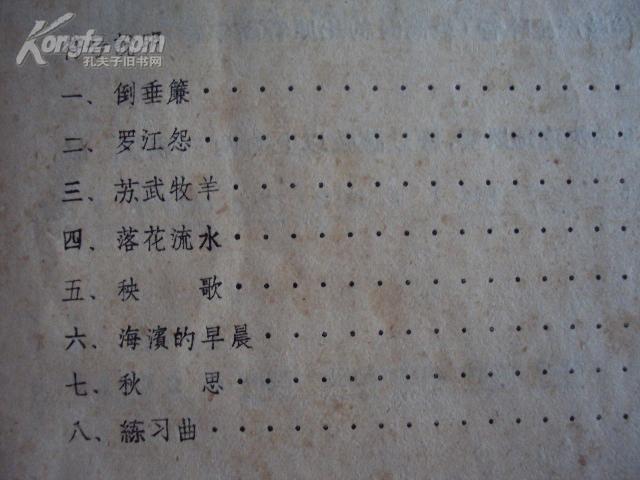 Kongfz.com
孔夫子旧书网
一、倒垂簾
二、罗江怨
三、苏武牧羊
四、落花流水
五、秧 歌
六、海濱的早晨
七、秋 思
八、練习曲